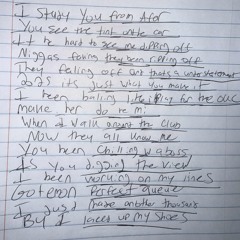 I Study You from Afar
You see the tint on the car
It be hard to see me dipping off
Niggas foxing they been ripping off
They falling off and thats a understatement
2025 its just what you make it
I been balling like I play for the OKC
make her do re mi
When I walk around the club
Now they all know me
You been chilling w a boss
Is you digging the view
been working on my lines
Got em on perfect queue
I just have another thousand
By I laced up my shoes